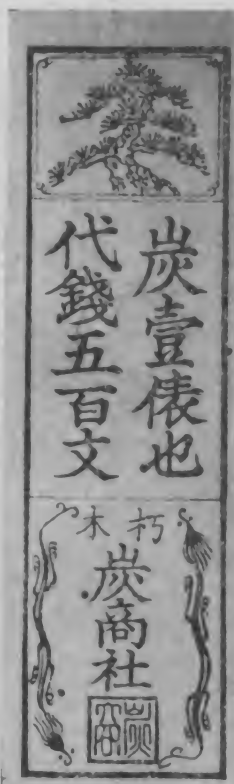 炭壹俵也
代錢五百文
朽木
炭商社